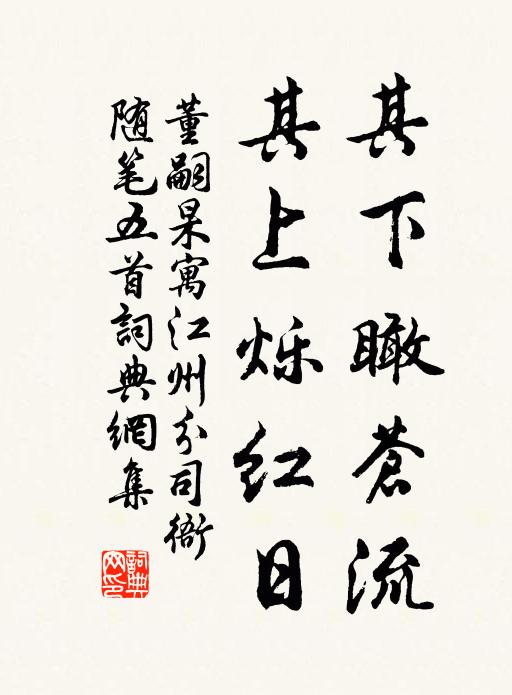 其下瞰苍流
其上烁红日
董嗣杲寓江州分司衙
随笔五首詞典網集
詞典網印